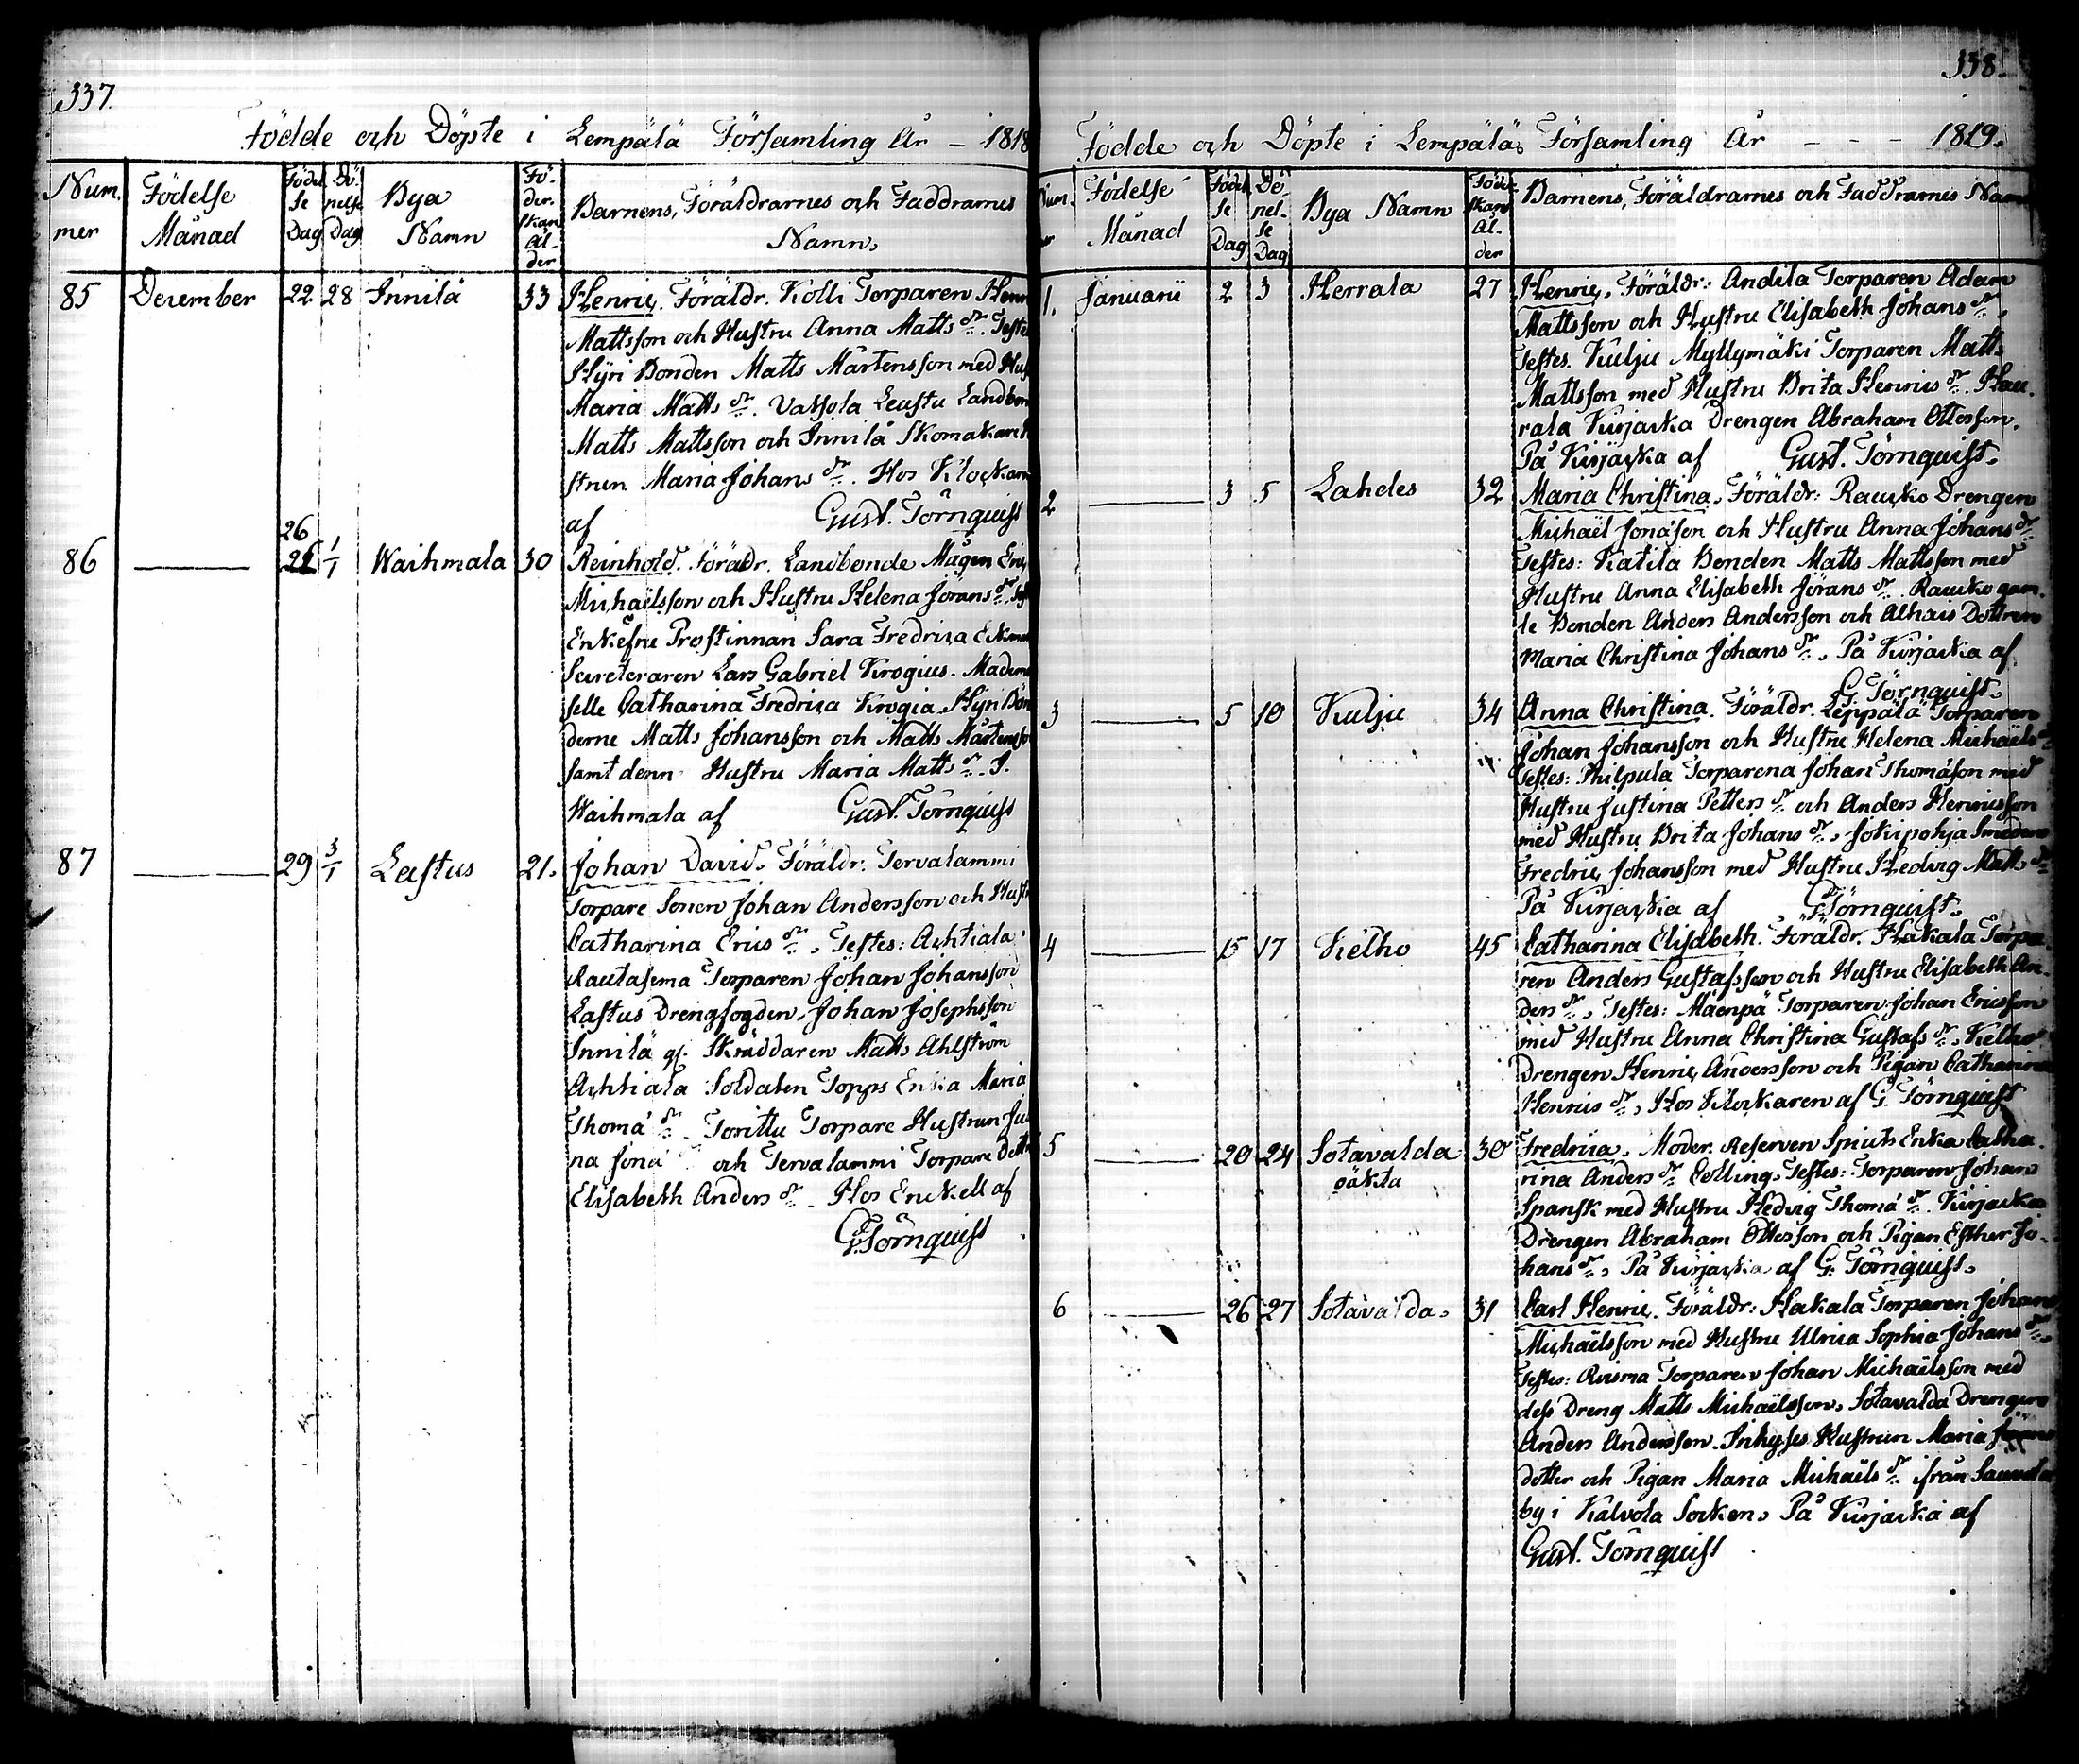 337.
Födde och Döpte i Lempälä Församling År – 1818
Num. mer
Födelse Månad
Födel se Dag
Dö pelse Dag
Bya Namn
Fö- der- skan Ål- der
Barnens, Föräldrarnes och Faddrarnes
Namn,
85 December 22 28 Innilä 33 Henric. Föräldr. Kolli Torparen Henr
Mattsson och Hustru Anna Matts dr. Teste
Hyri Bonden Matts Mårtensson med Hus
Maria Matts dr. Vaksola Leustu Landbon
Matts Mattsson och Innilä Skomakare
strun Maria Johans dr. Hos Klockare
af Gust. Törnquist
26
86 — 1/1 Waihmala 30 Reinhold. Förädr. Landbonde Mågen Eric
Michaëlsson och Hustru Helena Jörans dr.
Enkefru Prostinnan Sara Fredrica Eckman
Secreteraren Lars Gabriel Krogius. Madem
selle Catharina Fredrica Krogia. Hyri Bön
derne Matts Johansson och Matts Mårtensso
samt denn Hustru Maria Matts dr. I.
Waihmala af Gust. Törnquist
87 — 29 3/1 Lastus 21. Johan David. Föräldr: Tervalammi
Torpare Sonen Johan Andersson och Hustr
Catharina Erics dr., Testes: Achtiala
Rautasema Torparen Johan Johansson
Lastus Drengfogden, Johan Josephsson
Innilä gl. Skräddaren Matts Ahlström
Achtiala Soldaten Topps Enka Maria
Thoma dr. Torittu Torpare Hustrun Jus
na Jona och Tervalammi Torpare Dottr
Elisabeth Anders dr. Hos Enckell af
G. Törnquist
338.
Födde och Döpte i Lempälä Församling År – – – 1819.
Num. er
Födelse Månad
Födel se Dag
Dö- pel- se Dag
Bya Namn
Föder skans Ål- der
Barnens, Föräldrarnes och Faddrarnes Namn
1. Januarii 2 3 Herrala 27 Henric. Föräldr: Andila Torparen Adam
Mattsson och Hustru Elisabeth Johans dr.
Testes. Kulju Myllymäki Torparen Matts
Mattsson med Hustru Brita Henrics dr. Hau-
rala Kirjacka Drengen Abraham Ottosson.
På Kirjacka af Gust. Törnquist.
2 — 3 5 Lahdes 32 Maria Christina. Föräldr: Raucko Drengen
Michaël Jonasson och Hustru Anna Johans dr
Testes: Katila Bonden Matts Mattsson med
Hustru Anna Elisabeth Jörans dr. Raucko gam-
le Bonden Anders Andersson och Alhais Dottren
Maria Christina Johans dr., På Kirjacka af
G. Törnquist.
3 — 5 10 Kulju 34 Anna Christina. Föräldr. Leppälä Torparen
Johan Johansson och Hustru Helena Michaëls dr
Testes: Philpula Torparena Johan Thomasson med
Hustru Justina Petters dr och Anders Henricsson
med Hustru Brita Johans dr., Jokipohja Smeden
Fredric Johansson med Hustru Hedvig Matts dr
På Kirjackia af G. Törnquist.
4 — 15 17 Kelho 45 Catharina Elisabeth. Föräldr. Hakala Torpa-
ren Anders Gustafsson och Hustru Elisabeth An-
ders dr., Testes: Mäenpä Torparen Johan Ericsson
med Hustru Anna Christina Gustafs dr., Kelho
Drengen Henric Andersson och Pigan Catharina
Henrics dr., Hos Klockaren af G. Törnquist
5 — 20 24 Sotavalda 30 Fredrica. Moder. Reserven Spicuts Enka Catha-
öäkita
rina Anders dr Colling. Testes: Torparen Johan
Spansk med Hustru Hedvig Thoma dr. Kirjacka
Drengen Abraham Ottosson och Pigan Esther Jo-
hans dr., På Kirjackia af G. Törnquist.
6 — 26 27 Sotavalda. 31 Carl Henric. Föräldr: Hakala Torparen Johan
Michaëlsson med Hustru Ulrica Sophia Johans dr.
Testes: Torparen Johan Michaëlsson med
dess Dreng Matts Michaëlsson, Sotavalda Drengen
Anders Andersson. Inhyses Hustrun Maria
dotter och Pigan Maria Michaëls dr. ifrån
by i Kalvola Socken, På Kirjacka af
Gust. Törnquist